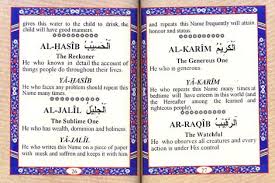 gives this water to the child to drink, the
child will have good manners.
AL-HASĪB الْحَسِيبُ
The Reckoner
He who knows in detail the account of
things people do throughout their lives.
YĀ-HASĪB
He who faces any problem should repeat this
Name many times.
AL-JALĪL الْجَلِيلُ
The Sublime One
He who has wealth, dominion and holiness.
YĀ-JALĪL
He who writes this Name on a piece of paper
with musk and saffron and keeps it with him
26
and repeats this Name frequently will attain
honour and status.
AL-KARĪM الْكَرِيمُ
The Generous One
He who is generous.
YĀ-KARĪM
He who repeats this Name many times at
bedtime will have esteem in this world (and
the Hereafter among the learned and
righteous people).
AR-RAQĪB الرَّقِيبُ
The Watchful
He who observes all creatures and every
action is under His control
27